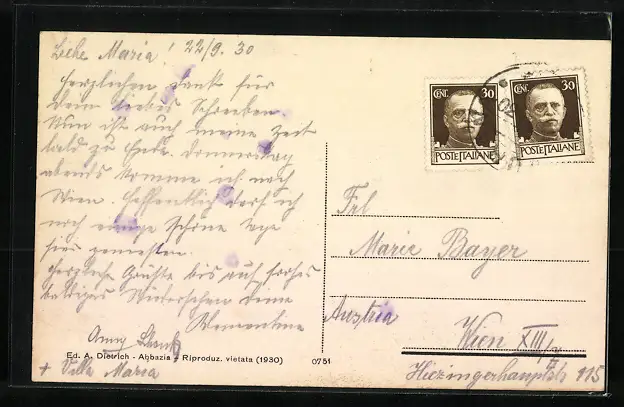 Liebe Maria! 22/9. 30
Herzlichen Dank für
Dein liebes Schreiben.
Nun ist auch meine Zeit
bald zu Ende. Donnerstag
abends komme ich nach
Wien. Hoffentlich darf ich
noch einige schöne Tage
hier genießen.
Herzliche Grüße bis auf frohes
baldiges Wiedersehen Deine
Klementine
Anny
+ Villa Maria
Ed. A. Dietrich - Abbazia - Riproduz. vietata (1930)
0751
CENT. 30
POSTE ITALIANE
CENT. 30
POSTE ITALIANE
Frl
Marie Bayer
Austria
Wien XIII/
Hiezingerhauptstr 115